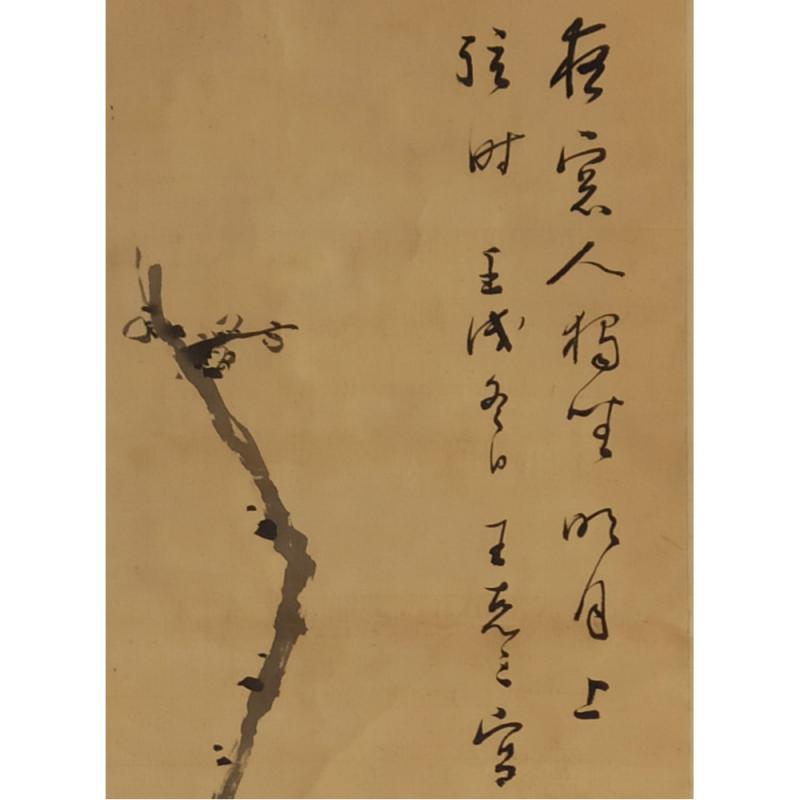 夜窓人獨坐明月上
弦时壬戌冬日王克三写